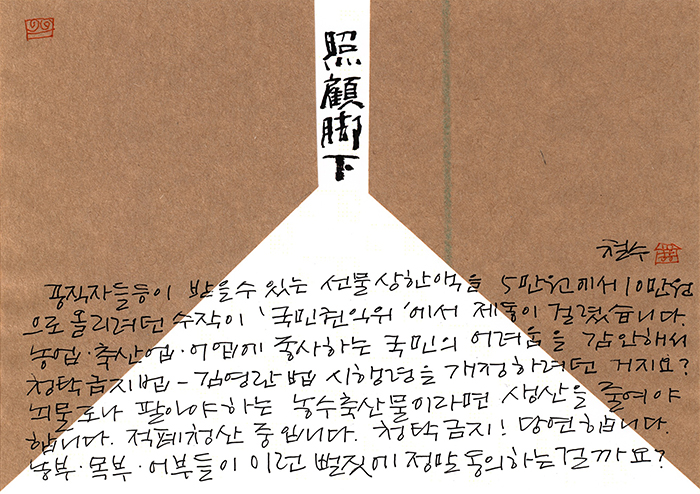 照顧脚下
철수
공직자들등이 받을수 있는 선물상한액을 5만원에서 10만원
으로 올리려던 수작이 '국민권익위'에서 제동이 걸렸습니다.
농업·축산업·어업에 종사하는 국민의 어려움을 감안해서
청탁금지법-김영란법 시행령을 개정하려던 거지요?
뇌물로나 팔아야하는 농수축산물이라면 생산을 줄여야
합니다. 적폐청산 중입니다. 청탁금지! 당연합니다.
농부·목부·어부들이 이런 뻘짓에 정말 동의하는걸까요?